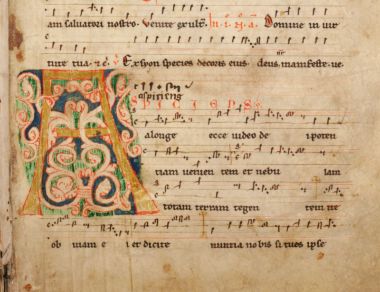 am salvatori nostro. Venite exult. Domine in vir
tute tua. Ex syon species decoris eius. deus manifeste ve
aspiciens
ASPICIENS
a longe ecce video de i poten
tiam venien tem et nebu lam
totam terram tegen tem ite
ob viam e i et dicite nuntia nobis si tu es ipse